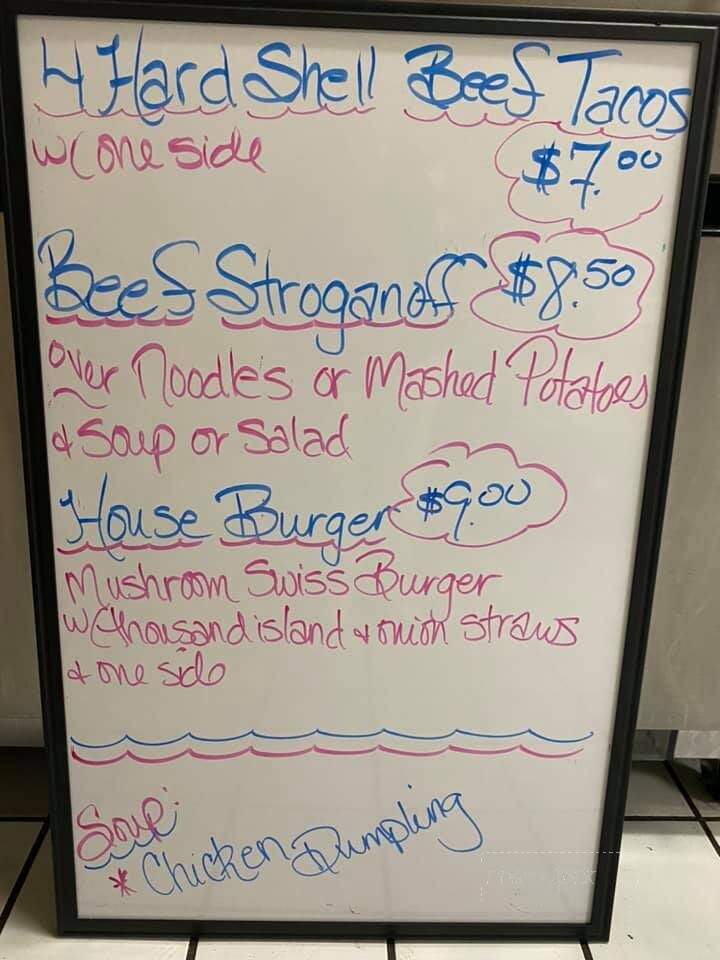 4 Hard Shell Beef Tacos
w/ one side
$7.00
Beef Stroganoff $8.50
over Noodles or Mashed Potatoes
& Soup or Salad
House Burger $9.00
Mushroom Swiss Burger
w/ thousand island & onion straws
& one side
Soup:
* Chicken Dumpling